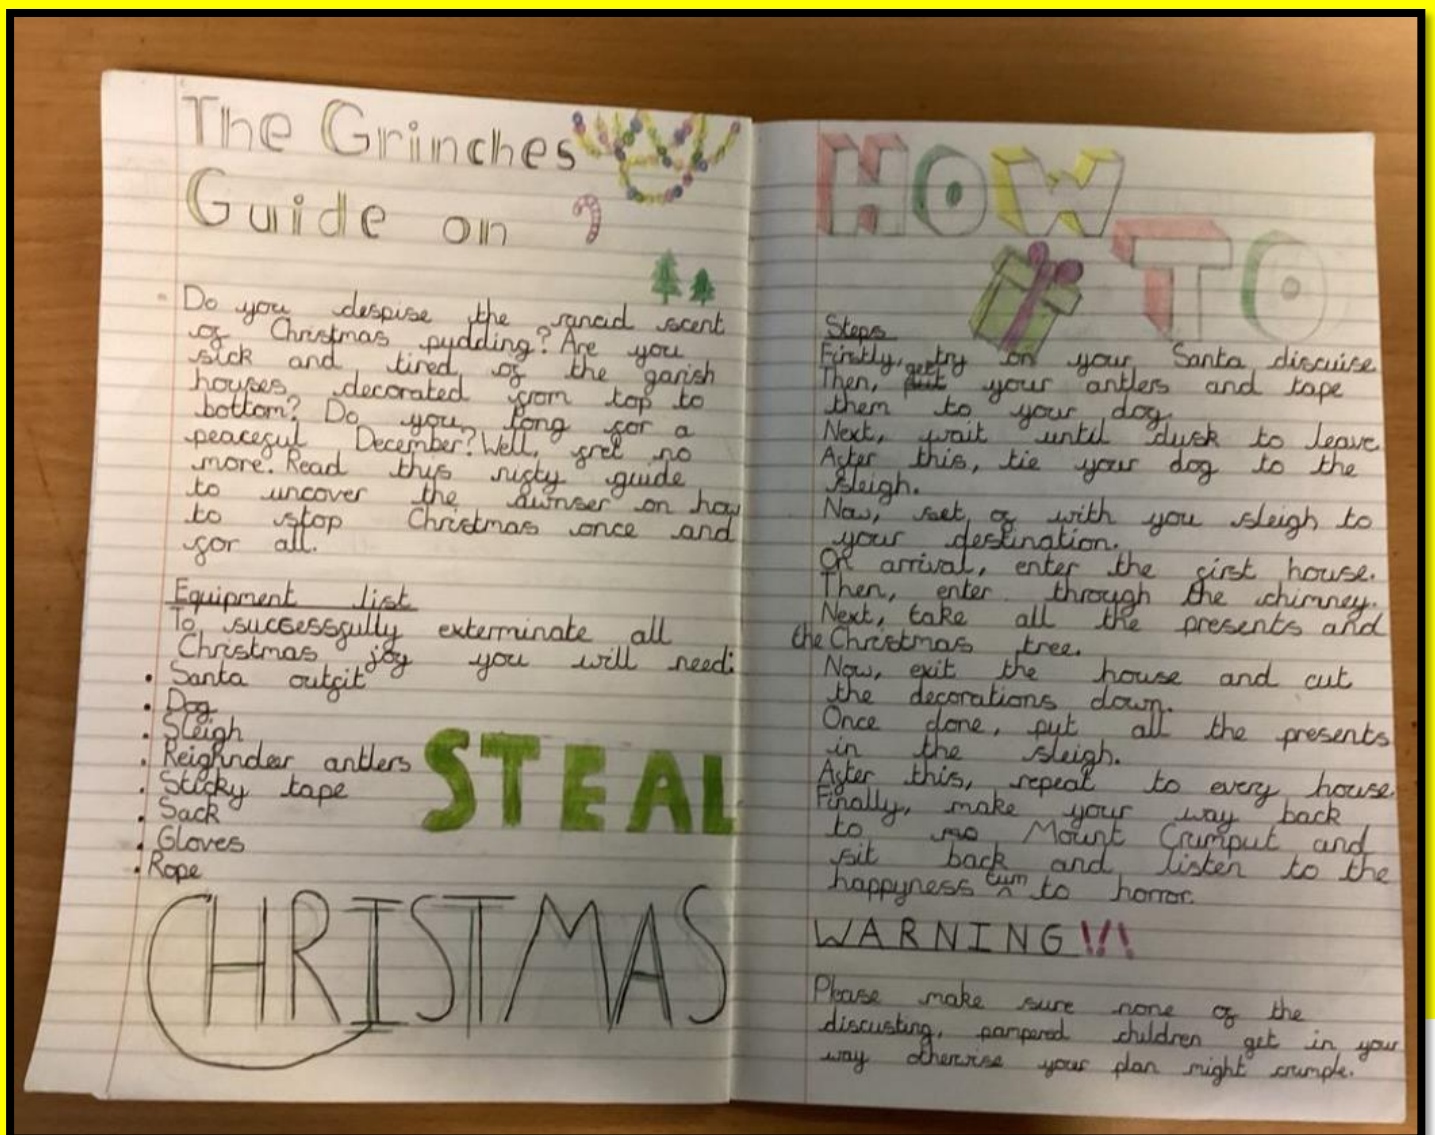 The Grinches
Guide on
Do you despise the rancid scent
of Christmas pudding? Are you
sick and tired of the garish
houses decorated from top to
bottom? Do you long for a
peaceful December? Well, fret no
more. Read this nifty guide
to uncover the awnser on how
to stop Christmas once and
for all.
Equipment list
To successfully exterminate all
Christmas joy you will need:
• Santa outfit
• Dog
• Sleigh
• Reighndear antlers
• Sticky tape
• Sack
• Gloves
• Rope
STEAL
CHRISTMAS
HOW
TO
Steps
Firstly, try on your Santa discuise
Then, get your antlers and tape
them to your dog.
Next, wait until dusk to leave.
After this, tie your dog to the
sleigh.
Now, set of with you sleigh to
your destination.
On arrival, enter the first house.
Then, enter through the chimney.
Next, take all the presents and
the Christmas tree.
Now, exit the house and cut
the decorations down.
Once done, put all the presents
in the sleigh.
After this, repeat to every house.
Finally, make your way back
to Mount Crumput and
sit back and listen to the
happyness turn to horror.
WARNING!!!
Please make sure none of the
discusting, pampered children get in your
way otherwise your plan might crumple.